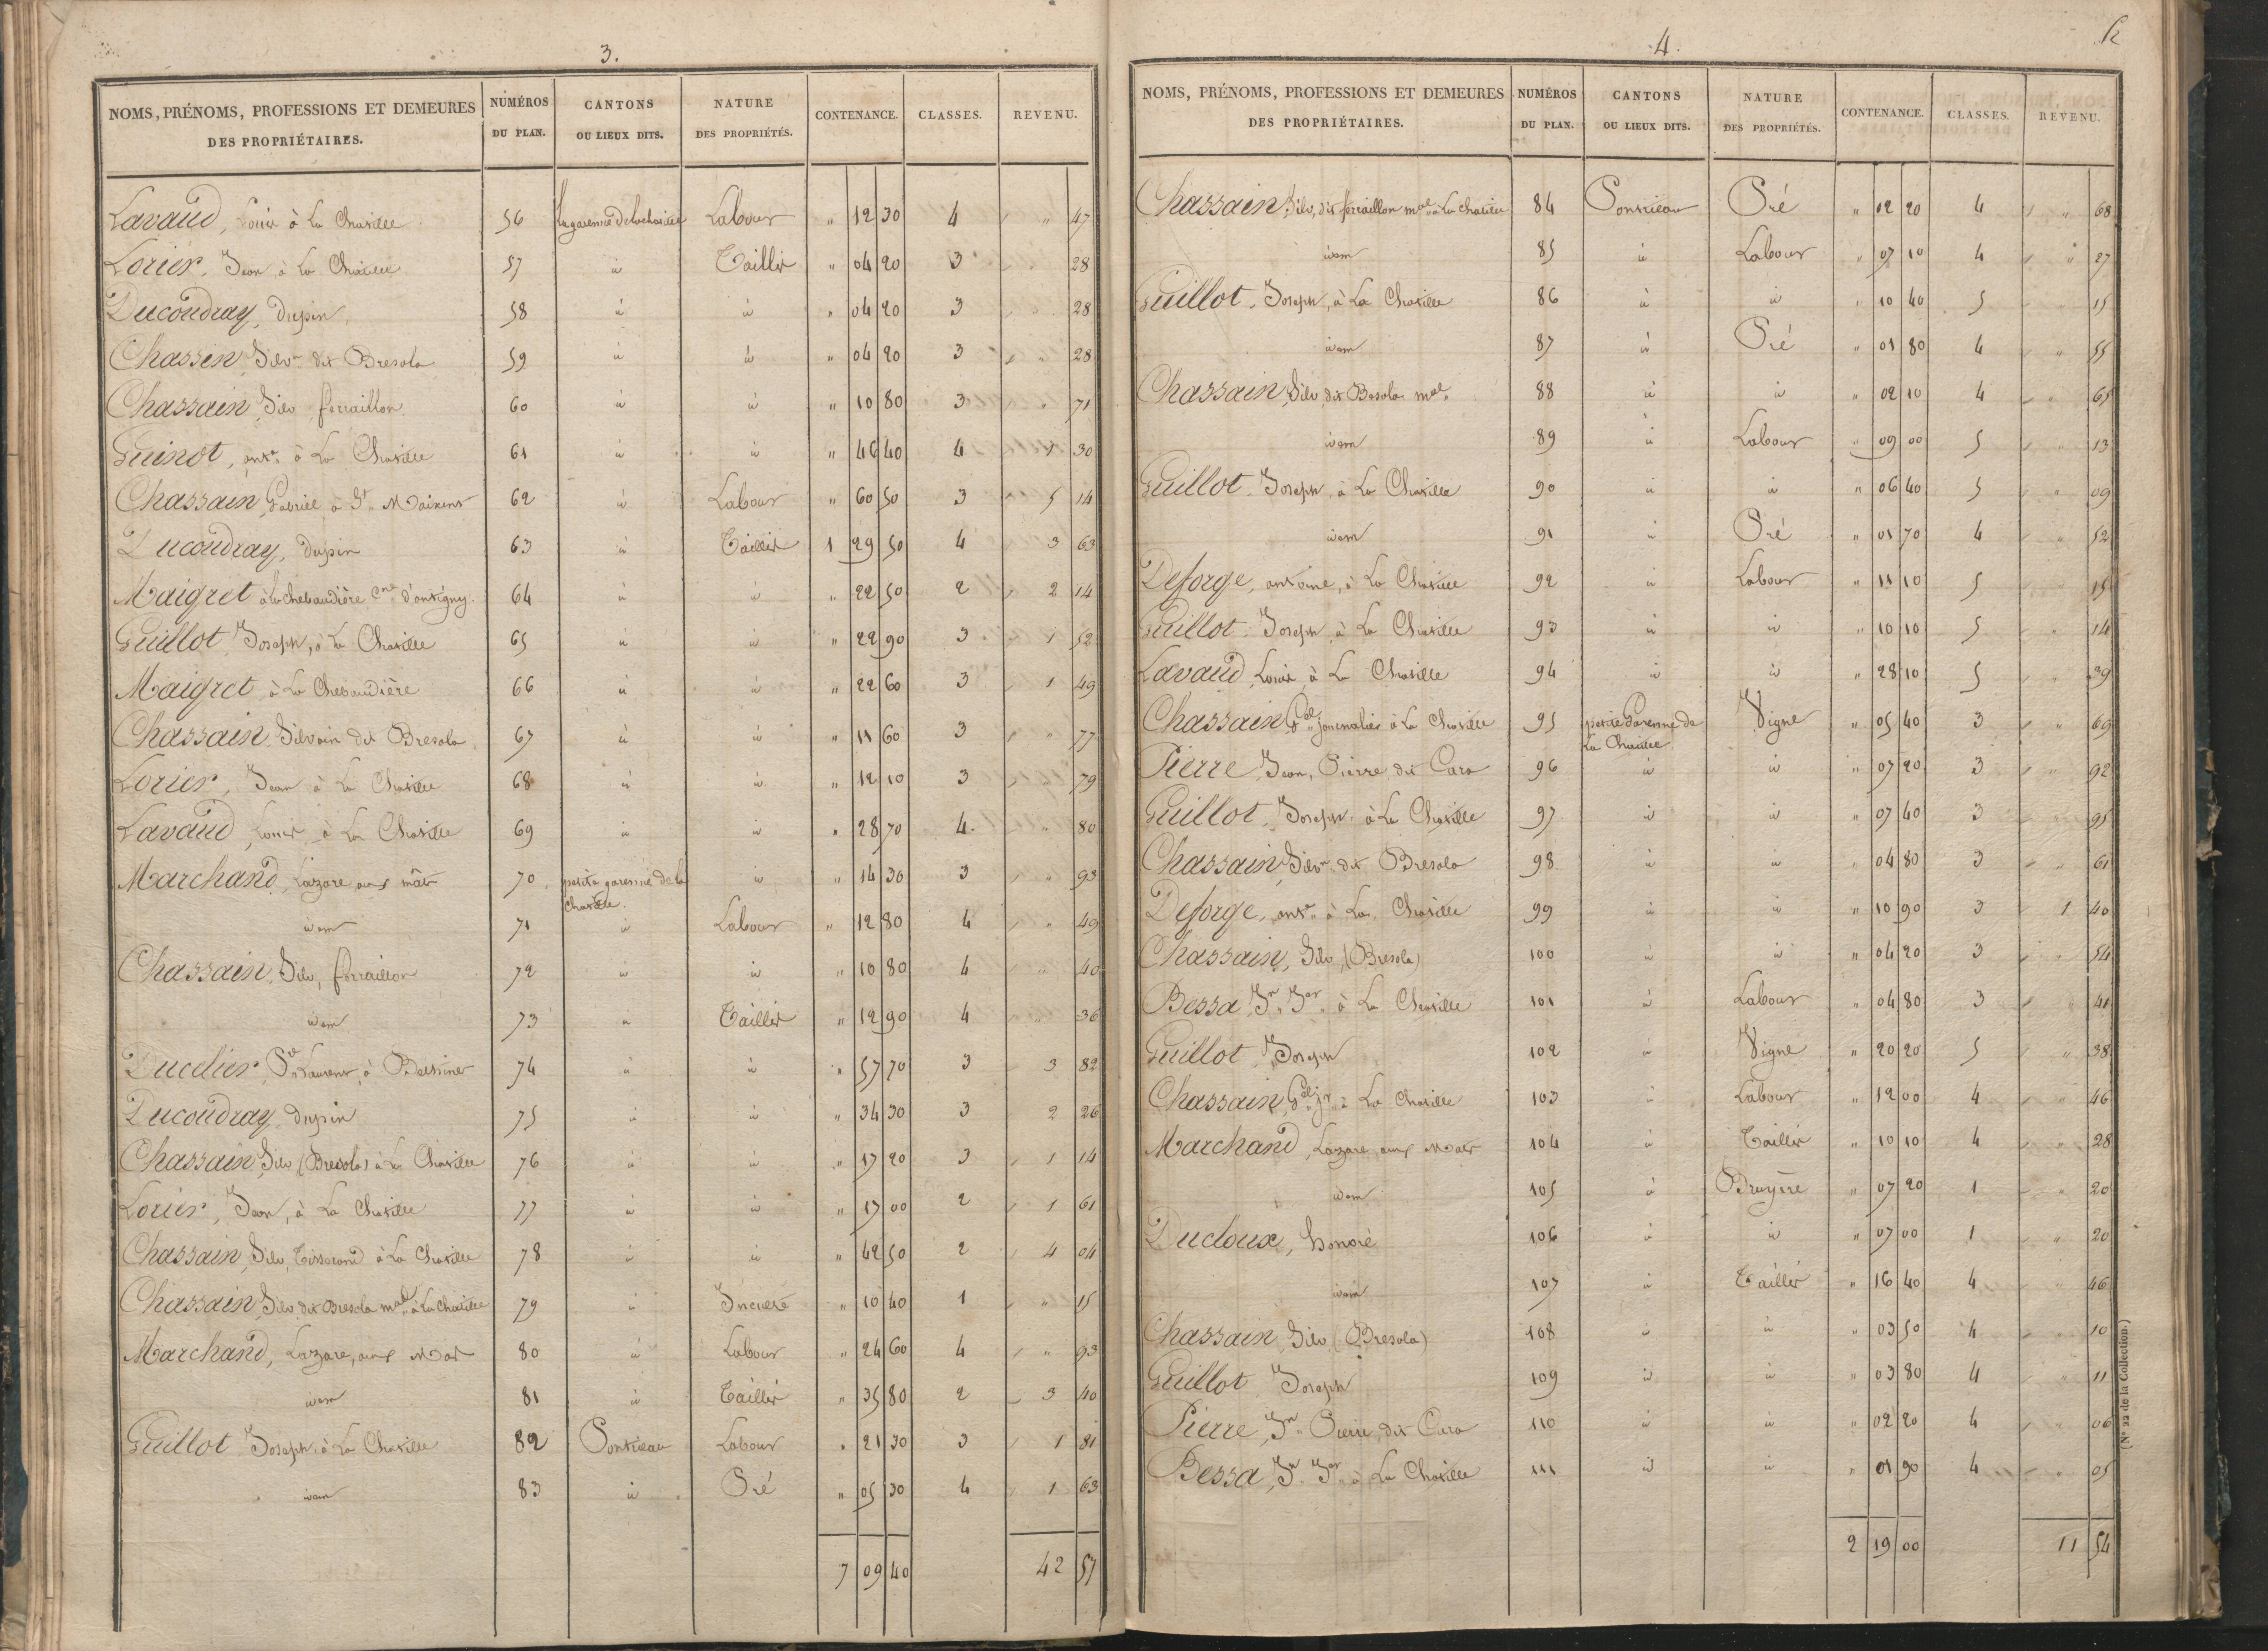 3.
NOMS, PRÉNOMS, PROFESSIONS ET DEMEURES DES PROPRIÉTAIRES. NUMÉROS DU PLAN. CANTONS OU LIEUX DITS. NATURE DES PROPRIÉTÉS. CONTENANCE. CLASSES. REVENU.
Lavaud, Louis à La Chatille 56 La garenne de la chatille Labour " 12 30 4 " 47
Lorier, Jean à La Chatille 57 id Taillis " 04 20 3 28
Ducoudray, Dupin 58 id id " 04 20 3 " 28
Chassin, Silv.n dit Bresola 59 id id " 04 20 3 " 28
Chassain, Silv ferraillon 60 id id " 10 80 3 " 71
Guinot, ant.e à La Chatille 61 id id " 46 40 4 1 30
Chassain, Gabriel à St Maixent 62 id Labour " 60 50 3 5 14
Ducoudray, Dupin 63 id Taillis 1 29 50 4 3 63
Maigret à La chebaudière Cne d'antigny 64 id id " 22 50 2 2 14
Guillot, Joseph, à La Chatille 65 id id " 22 90 3 1 52
Maigret à La Chebaudière 66 id id " 22 60 3 1 49
Chassain, Silvain dit Bresola 67 id id " 11 60 3 " 77
Lorier, Jean à La Chatille 68 id id " 12 10 3 " 79
Lavaud, Louis à La Chatille 69 id id " 28 70 4 " 80
Marchand, Lazare aux mâts 70 petite garenne de la chatille. id " 14 30 3 " 93
idem 71 id Labour " 12 80 4 " 49
Chassain, Silv, ferraillon 72 id id " 10 80 4 " 40
idem 73 id Taillis " 12 90 4 " 36
Ducelier, Laurent, à 74 id id " 57 70 3 3 82
Ducoudray Dupin 75 id id " 34 30 3 2 26
Chassain, Silv (Bresola) à La Chatille 76 id id " 17 20 3 1 14
Lorier, Jean, à La Chatille 77 id id " 17 00 2 1 61
Chassain, Silv, Tisserand à La Chatille 78 id id " 42 50 2 4 04
Chassain, Silv dit Bresola mal à La Chatille 79 id Inculte " 10 40 1 " 15
Marchand, Lazare, aux Mats 80 id Labour " 24 60 4 " 93
idem 81 id Taillis " 35 80 2 3 40
Guillot, Joseph, à La Chatille 82 Pontreau Labour " 21 30 3 1 81
idem 83 id Pré " 05 30 4 1 63
7 09 40 42 57
4.
NOMS, PRÉNOMS, PROFESSIONS ET DEMEURES DES PROPRIÉTAIRES. NUMÉROS DU PLAN. CANTONS OU LIEUX DITS. NATURE DES PROPRIÉTÉS. CONTENANCE. CLASSES. REVENU.
Chassain, Silv, dit ferraillon mal à La Chatille 84 Pontreau Pré " 02 20 4 " 68
idem 85 id Labour " 07 10 4 " 27
Guillot, Joseph, à La Chatille 86 id id " 10 40 5 15
idem 87 id Pré " 01 80 4 " 55
Chassain, Silv dit Bresola mal 88 id id " 02 10 4 " 65
idem 89 id Labour " 09 00 5 " 13
Guillot, Joseph, à La Chatille 90 id id " 06 40 5 " 09
idem 91 id Pré " 01 70 4 " 52
Deforge, antoine, à La Chatille 92 id Labour " 11 10 5 15
Guillot, Joseph, à La Chatille 93 id id " 10 10 5 " 14
Lavaud, Louis à La Chatille 94 id id " 28 10 5 " 39
Chassain, Gal journalier à La Chatille 95 petite Garenne de La Chatille Vigne " 05 40 3 " 69
Pierre, Jean, Pierre, dit Caro 96 id id " 07 20 3 " 92
Guillot, Joseph à La Chatille 97 id id " 07 40 3 " 95
Chassain, Silv.n dit Bresola 98 id id " 04 80 3 " 61
Deforge, ant.e à La Chatille 99 id id " 10 90 3 1 40
Chassain, Silv, (Bresola) 100 id id " 04 20 3 " 54
Bessa, Jn. Jos. à La Chatille 101 id Labour " 04 80 3 " 41
Guillot, Joseph 102 id Vigne " 20 20 5 " 38
Chassain, Gal jr à La Chatille 103 id Labour " 12 00 4 " 46
Marchand, Lazare, aux Mats 104 id Taillis " 10 10 4 " 28
idem 105 id Bruyère " 07 20 1 " 20
Ducloux, honoré 106 id id " 07 00 1 " 20
idem 107 id Taillis " 16 40 4 " 46
Chassain, Silv (Bresola) 108 id id " 03 50 4 " 10
Guillot, Joseph 109 id id " 03 80 4 " 11
Pierre, Jn Pierre, dit Caro 110 id id " 02 20 4 " 06
Bessa, Jn Jos. à La Chatille 111 id id " 01 90 4 " 05
2 19 00 11 54
(N° 22 de la Collection.)